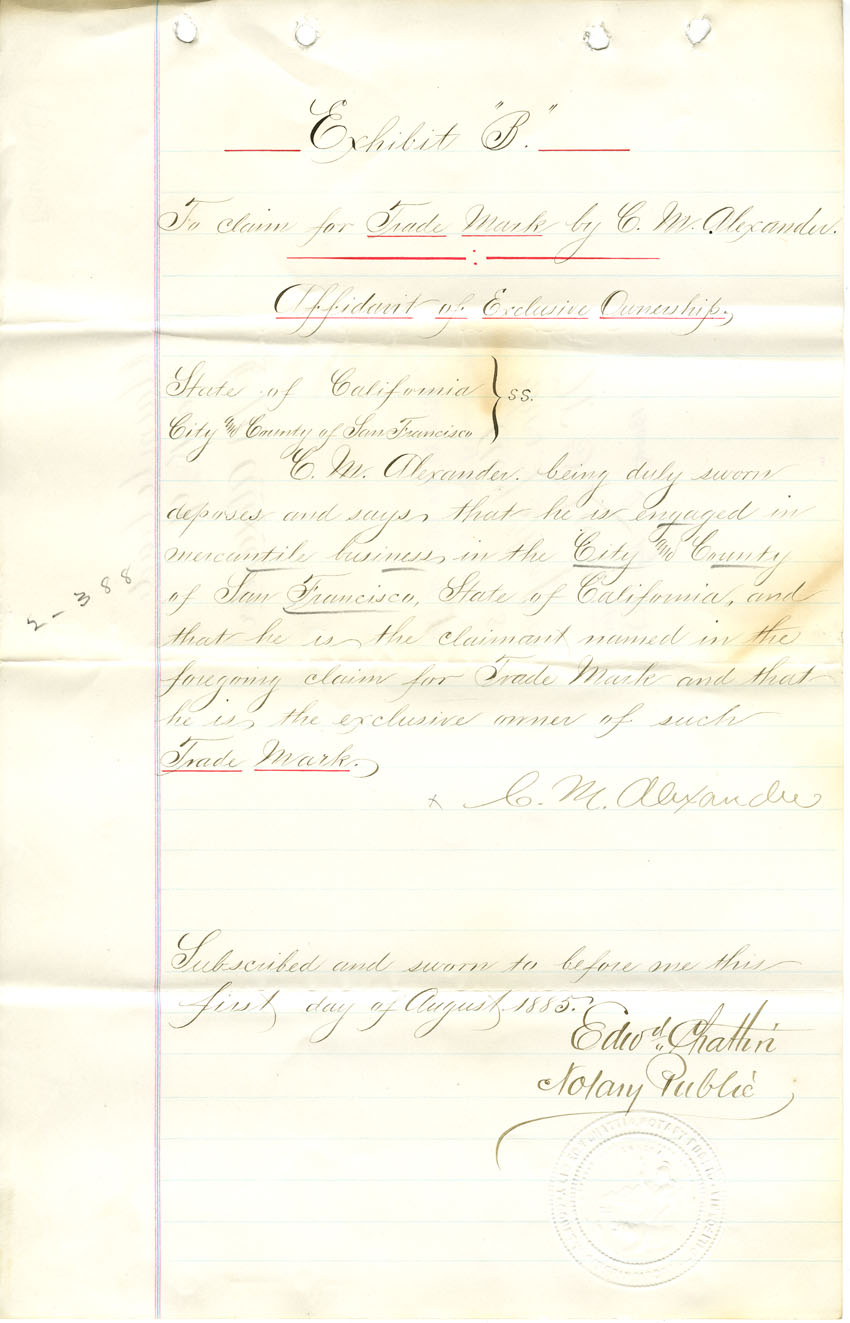 Exhibit "B."
To claim for Trade Mark by C. M. Alexander.
Affidavit of Exclusive Ownership.
State of California } ss.
City and County of San Francisco
C. M. Alexander. being duly sworn
deposes and says, that he is engaged in
mercantile business, in the City and County
of San Francisco, State of California, and
that he is the claimant named in the
foregoing claim for Trade Mark and that
he is, the exclusive owner of such
Trade Mark.
x C. M. Alexander
2-388
Subscribed and sworn to before me this
first day of August 1885.
Edwd. Chattin
Notary Public